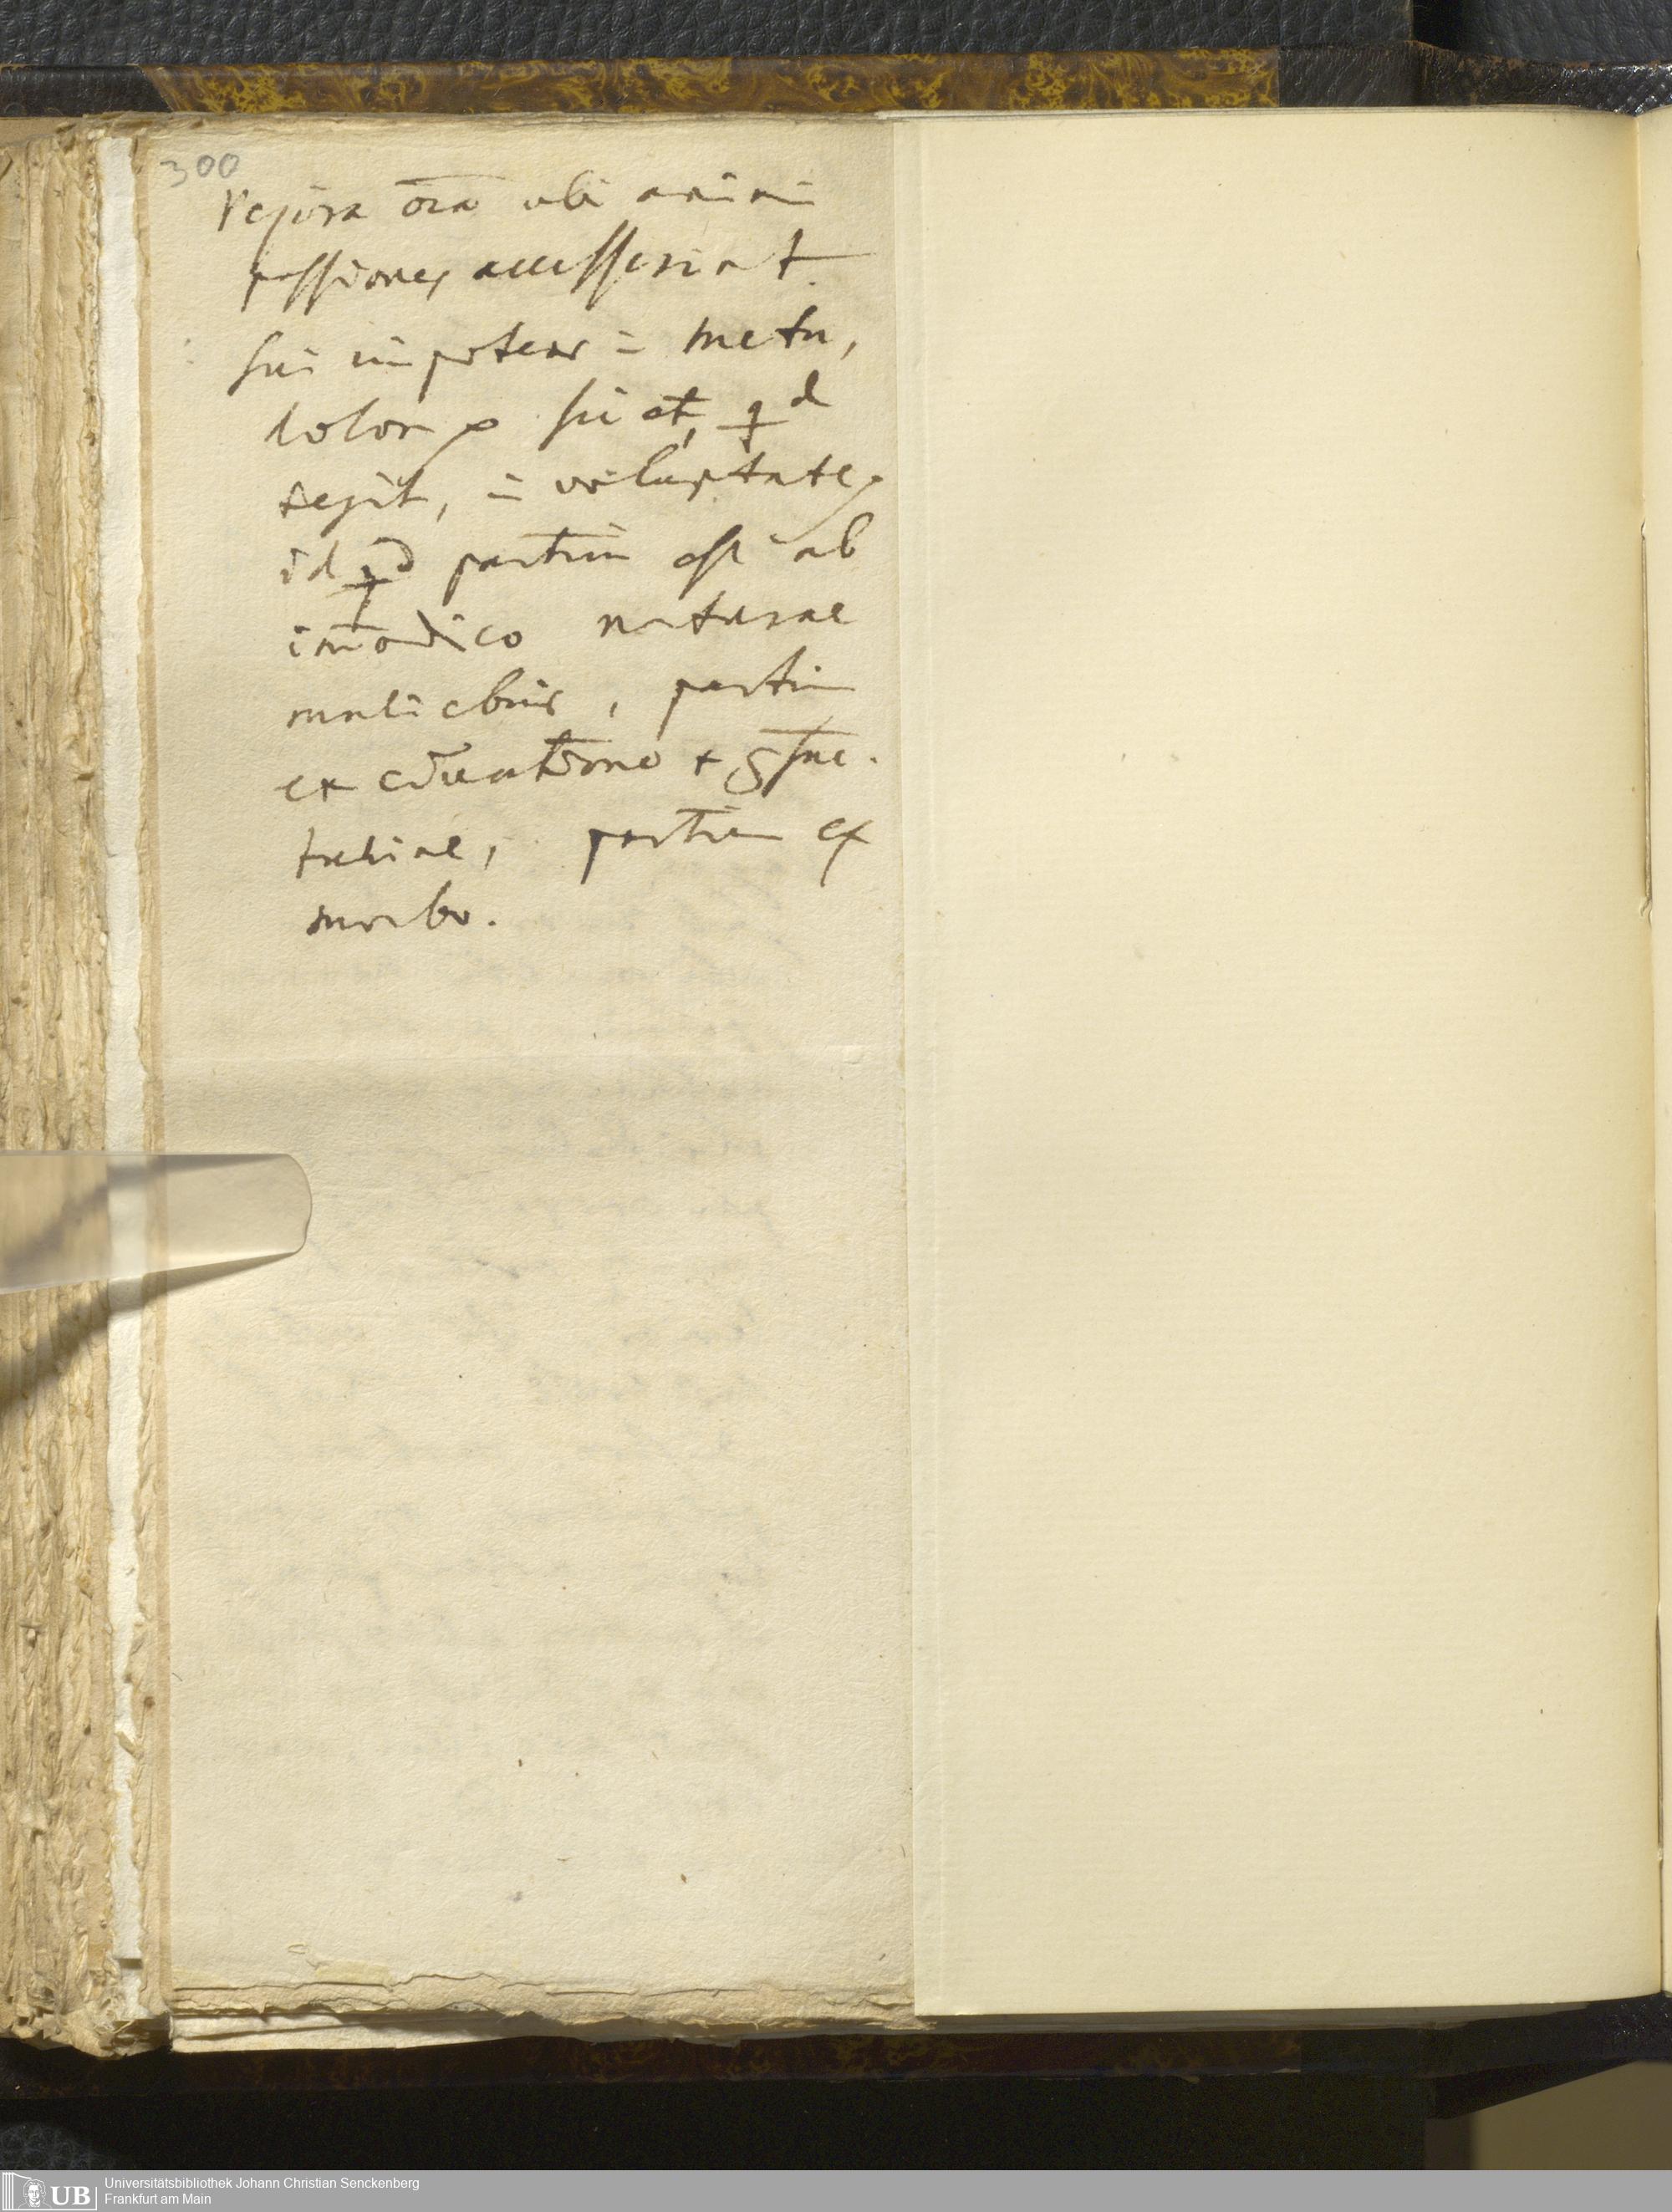 300
Pejora oīa ubi animi
passiones accesserint
sui impotens ī metu,
dolore sicut, qd
tegit, ī voluptate,
id qd partim est ab
im̄odico naturae
muliebris, partim
ex educatione +
tudine, partim ex
morbo.
UB Universitätsbibliothek Johann Christian Senckenberg
Frankfurt am Main